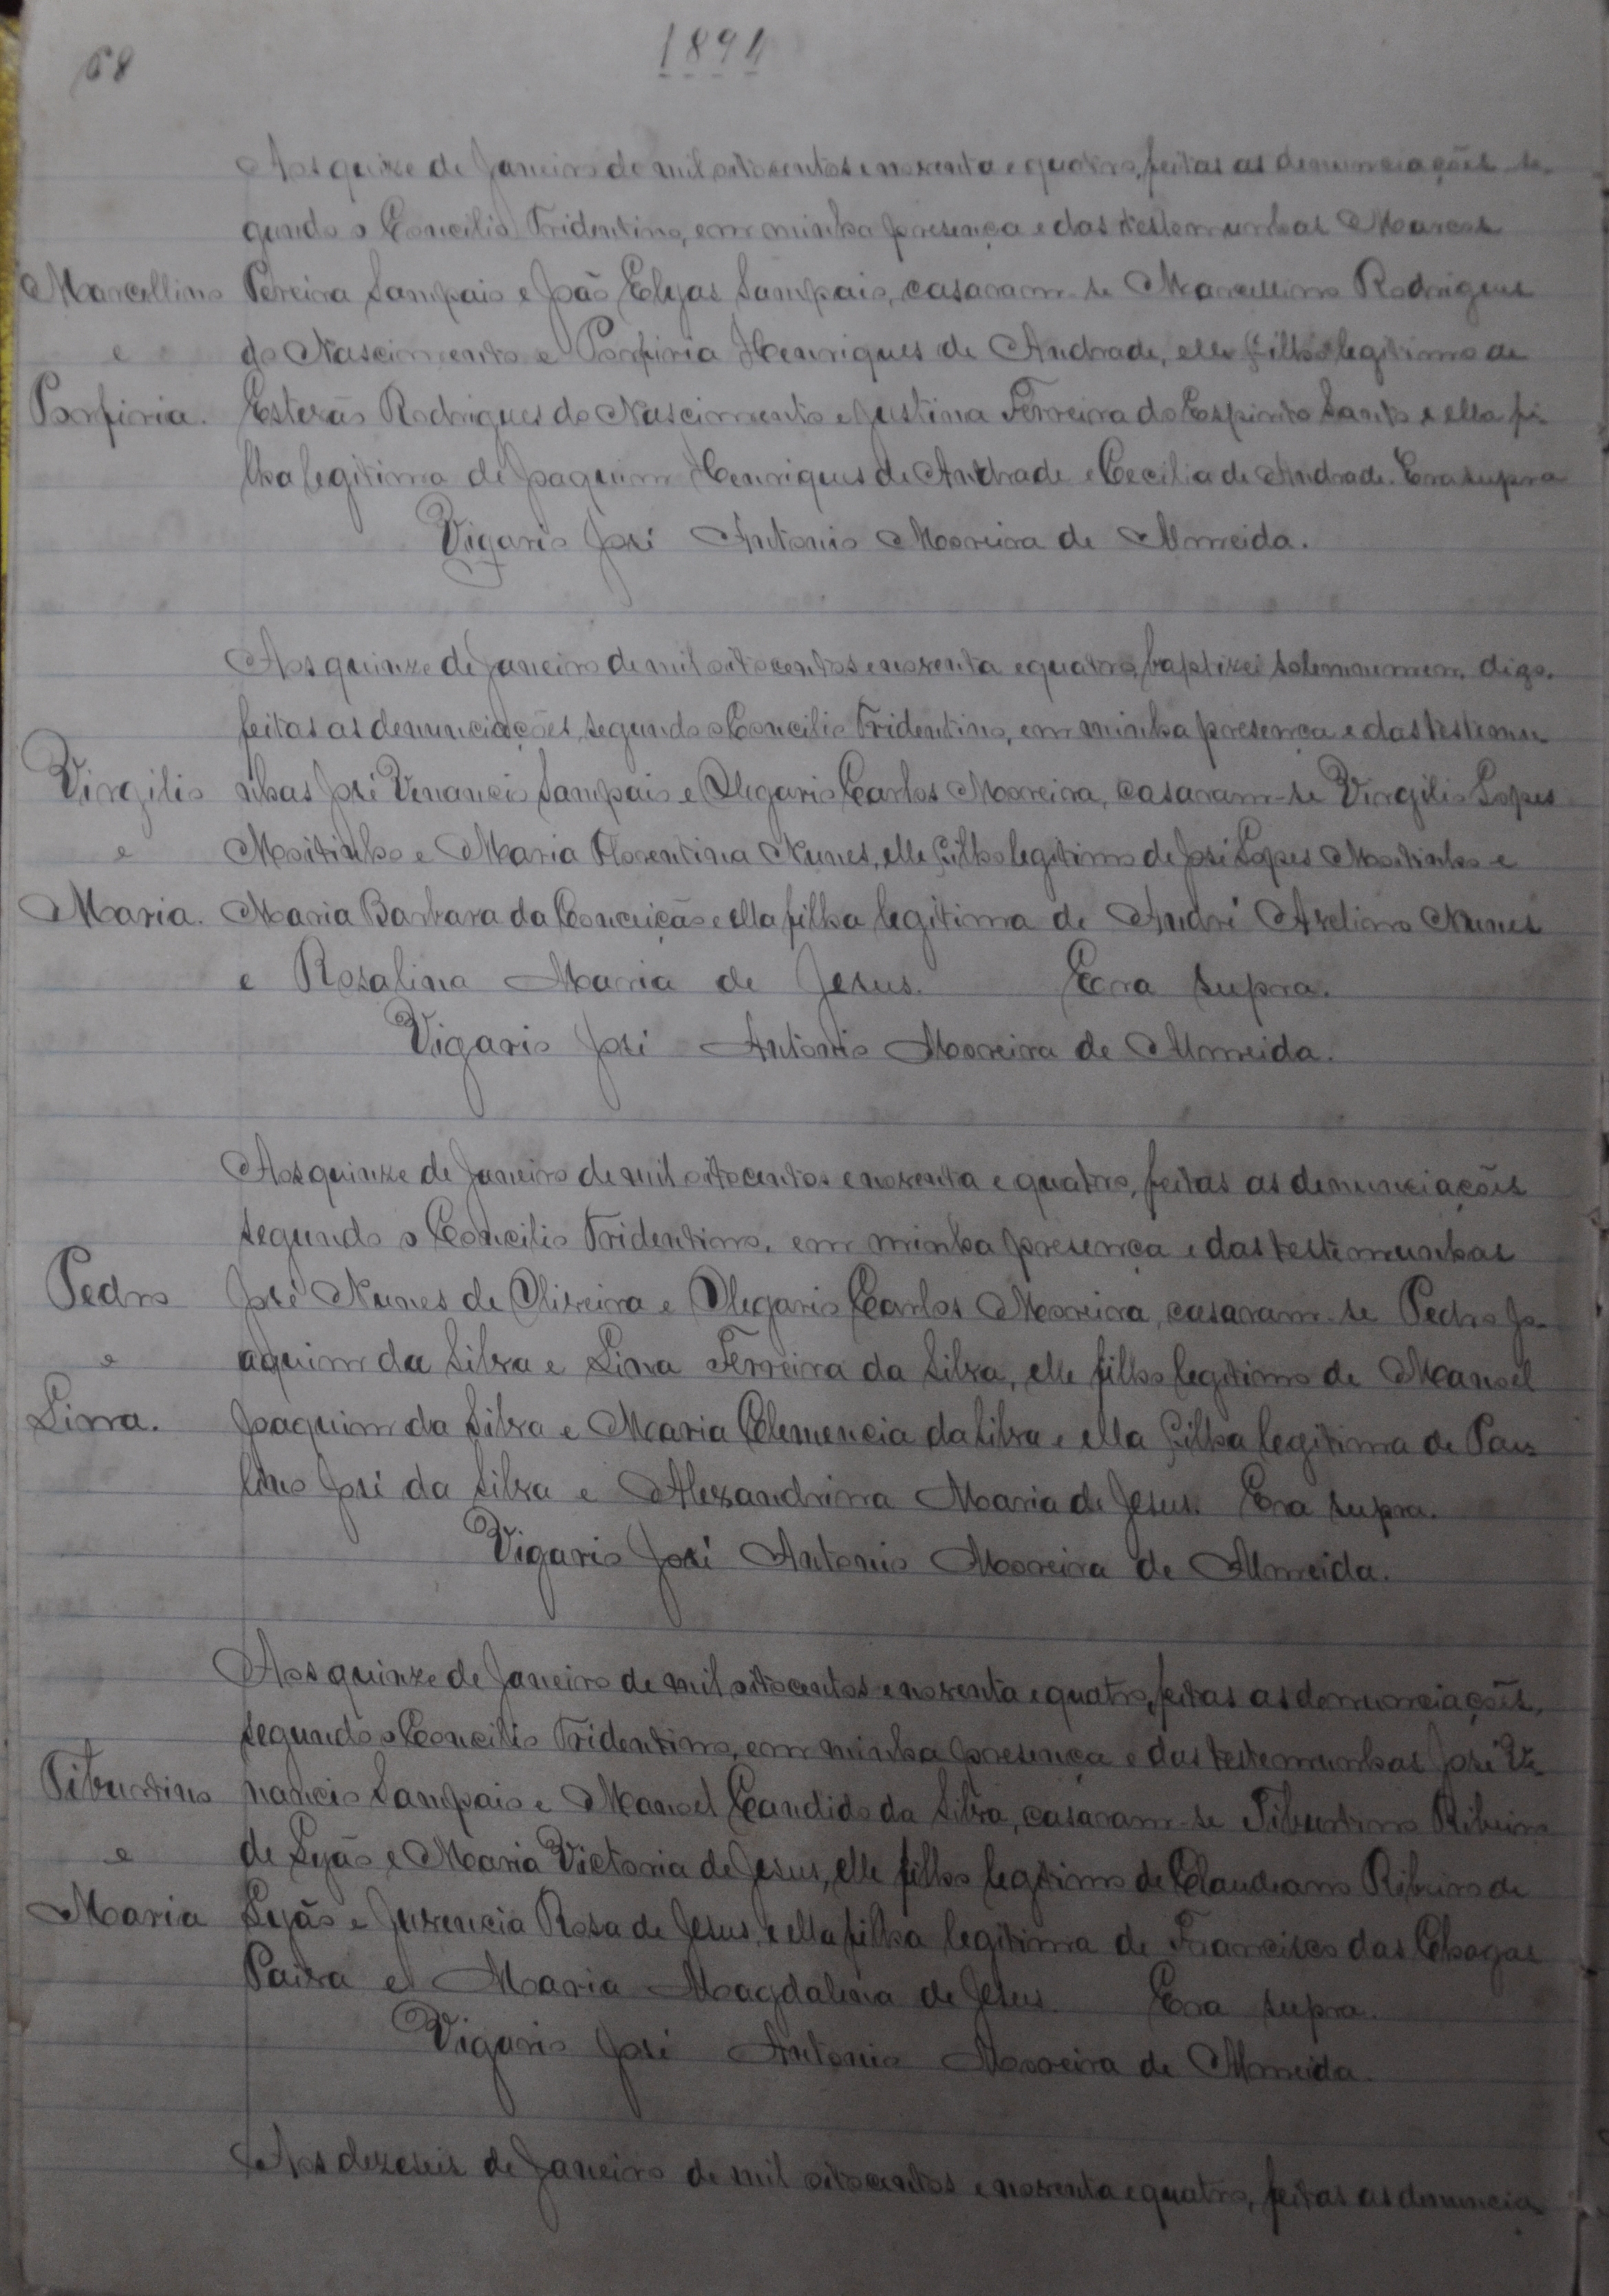 68
1894
Aos quize de Janeiro de mil oitocentos e noventa e quatro, feitas as denunciações se-
gundo o Concilio Tridentino, em minha presença e das testemunhas Marcos
Marcellino Pereira Sampaio e João Elyas Sampaio, casaram-se Marcellino Rodrigues
e do Nascimento e Porfiria Henriques de Andrade, elle filho legitimo de
Porfiria. Estevão Rodrigues do Nascimento e Justina Ferreira do Espirito Santo e ella fi-
lha legitima de Joaquim Henriques de Andrade e Cecilia de Andrade. Era supra
Vigario José Antonio Moreira de Almeida.
Aos quinze de Janeiro de mil oitocentos e noventa e quatro, baptizei solemnumem, digo,
feitas as denunciações, segundo o Concilio Tridentino, em minha presença e das testemu
Virgilio nhas José Venancio Sampaio e Olegario Carlos Moreira, casaram-se Virgilio Lopes
e Moitinho e Maria Florentina Nunes, elle filho legitimo de José Lopes Moitinho e
Maria. Maria Barbara da Conceição e ella filha legitima de André Avelino Nunes
e Rosalina Maria de Jesus. Era supra.
Vigario José Antonio Moreira de Almeida.
Aos quinze de Janeiro de mil oitocentos e noventa e quatro, feitas as denunciações
segundo o Concilio Tridentino, em minha presença e das testemunhas
Pedro José Nunes de Oliveira e Olegario Carlos Moreira, casaram-se Pedro Jo-
e aquim da Silva e Linna Ferreira da Silva, elle filho legitimo de Manoel
Linna. Joaquim da Silva e Maria Clemencia da Silva e ella filha legitima de Pau-
lino José da Silva e Alexandrina Maria de Jesus. Era supra.
Vigario José Antonio Moreira de Almeida.
Aos quinze de Janeiro de mil oitocentos e noventa e quatro, feitas as denunciações,
segundo o Concilio Tridentino, em minha presença e das testemunhas José Ve-
Tiburtino nancio Sampaio e Manoel Candido da Silva, casaram-se Tiburtino Ribeiro
e de Lyão e Maria Victoria de Jesus, elle filho legitimo de Claudiano Ribeiro de
Maria Lyão e Juvencia Rosa de Jesus, e ella filha legitima de Francisco das Chagas
Paiva e Maria Magdalena de Jesus. Era supra.
Vigario José Antonio Moreira de Almeida.
Aos dezeseis de Janeiro de mil oitocentos e noventa e quatro, feitas as denuncia